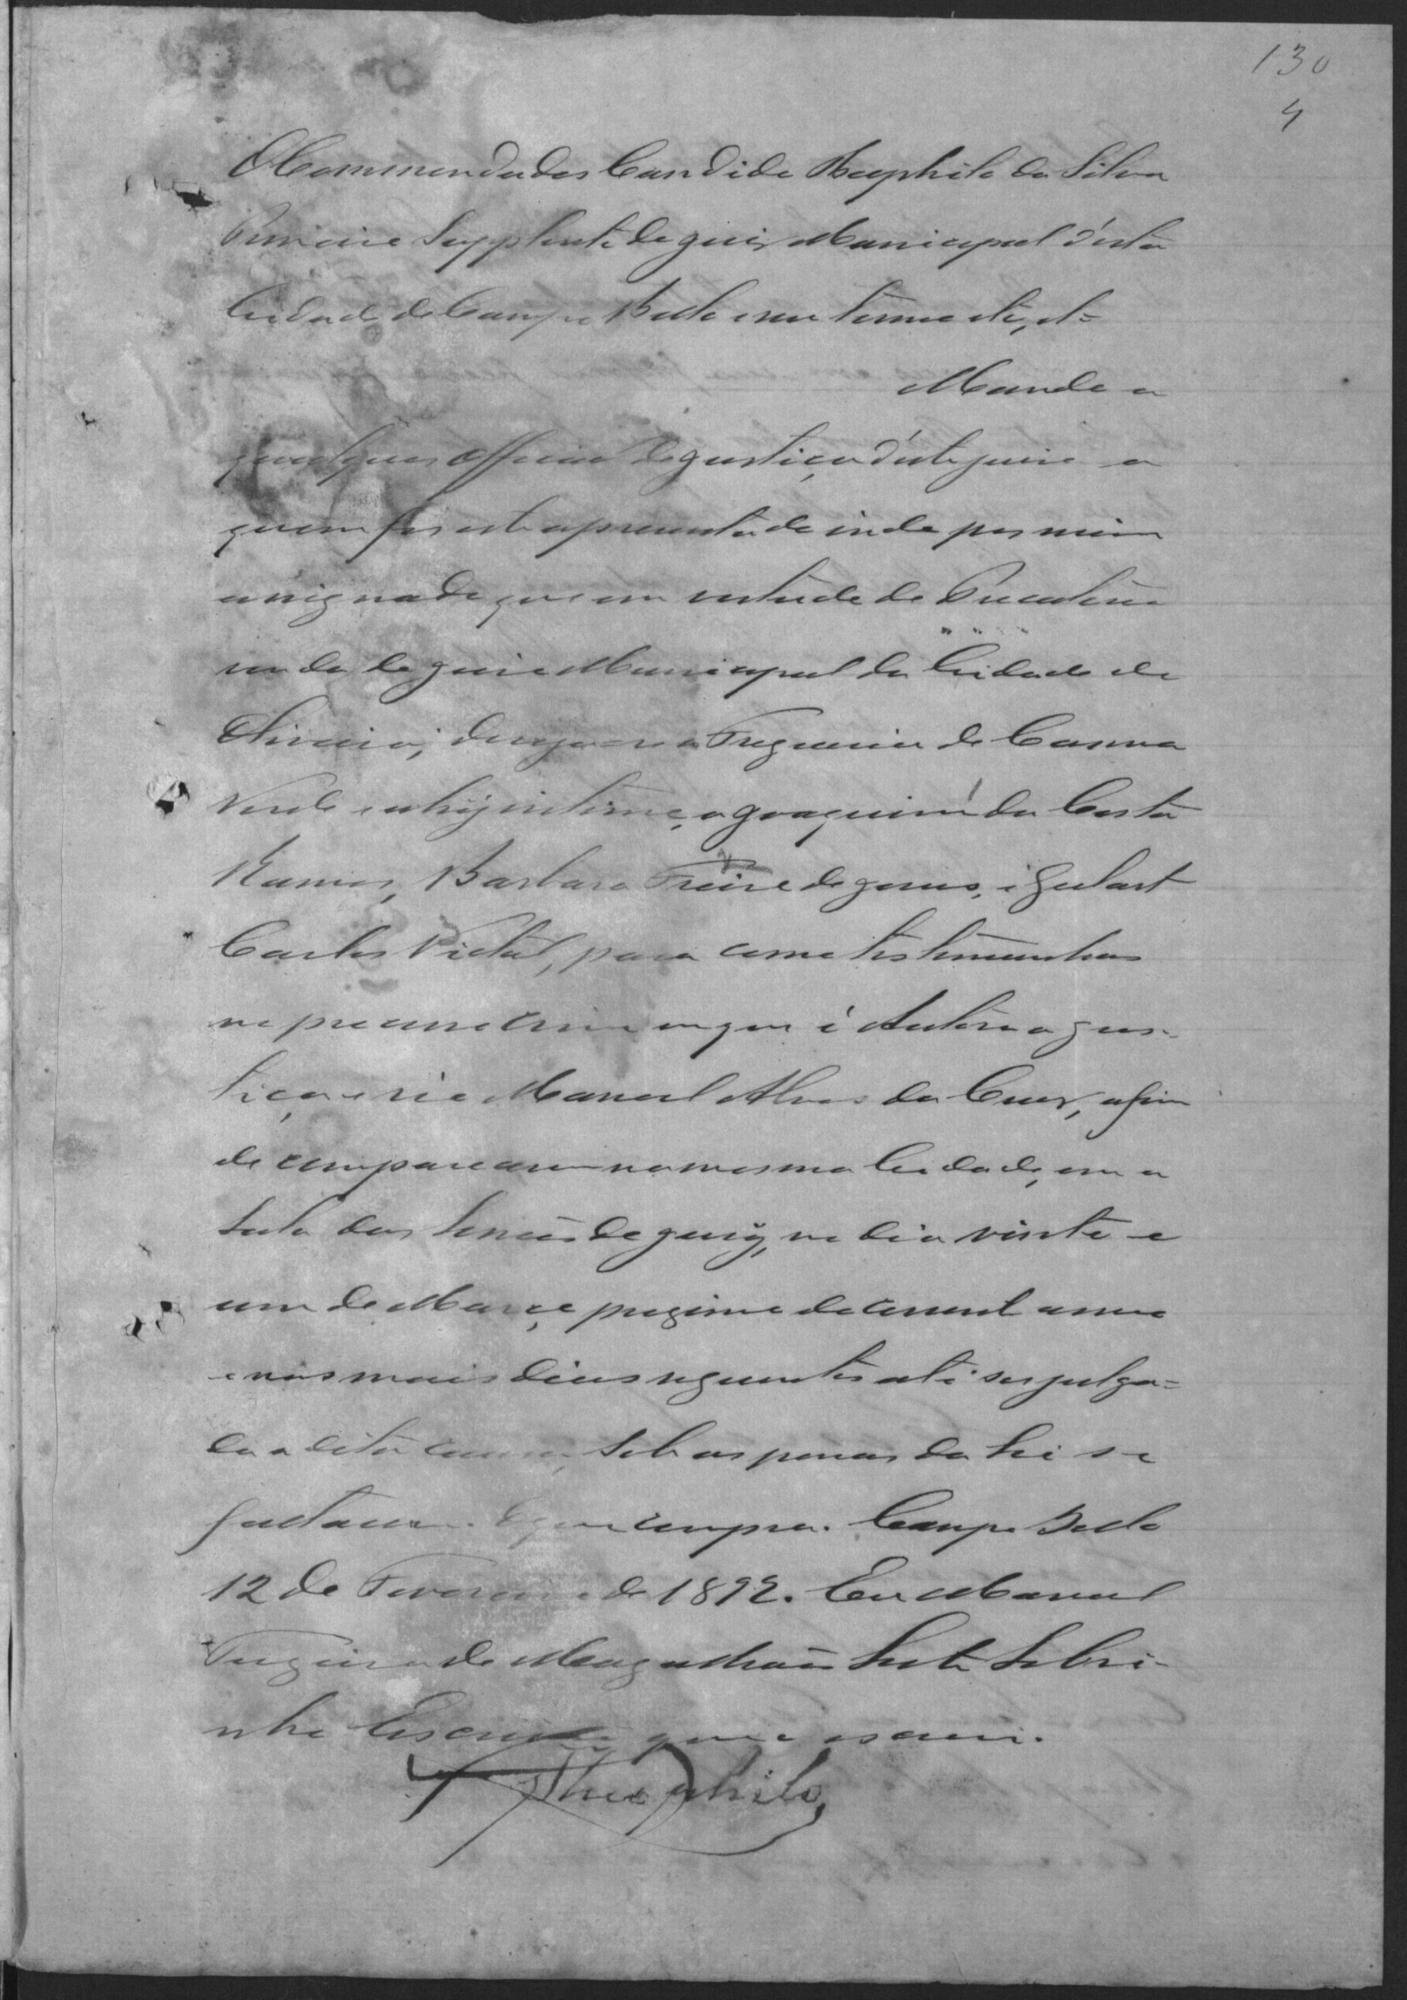 130
4
O Commendador Candido Theophilo da Silva
Primeiro Supplente de Juiz Municipal d'esta
Cidade de Campo Bello e seu termo etc, etc
Mando a
qualquer official de justiça d'este juizo a
quem for este apresentado indo por mim
assignado que em virtude de Precatoria
vinda do Juizo Municipal da Cidade de
Oliveira, dirija-se a Freguesia de Canna
Verde e ahi intime a Joaquim da Costa
Ramos, Barbara Freire de Jesus, e Gulart
Carlos Vidal, para como testemunhas
no processo crime em que é Autora a Jus-
tiça e reo Manoel Alves da Cruz, afim
de comparecerem na mesma Cidade, em a
sala das sessões do jury, no dia vinte e
um de Março proximo do corrente anno
e nos mais dias seguintes até ser julga-
da a dita causa, sob as penas da Lei se
faltarem. O que cumpra. Campo Bello
12 de Fevereiro de 1892. Eu Manoel
de Magalhães Leite Sobri-
nho Escrivão que o escrevi.
Theophilo